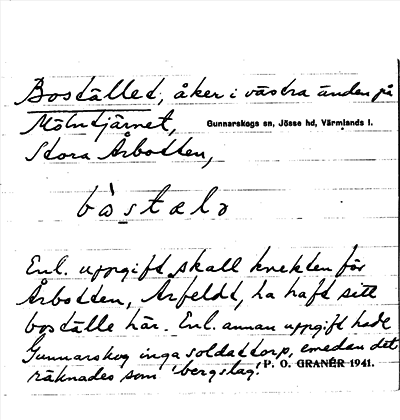 Bostället, åker i västra änden på
Mötntjärnet,
Gunnarskogs sn, Jösse hd, Värmlands l.
Stora Årbotten,
bò̀stælə
Enl. uppgift skall knekten för
Årbotten, Arfeldt, ha haft sitt
boställe här. Enl. annan uppgift hade
Gunnarskog inga soldattorp, emedan det
räknades som 'bergslag'.
P. O. GRANÉR 1941.